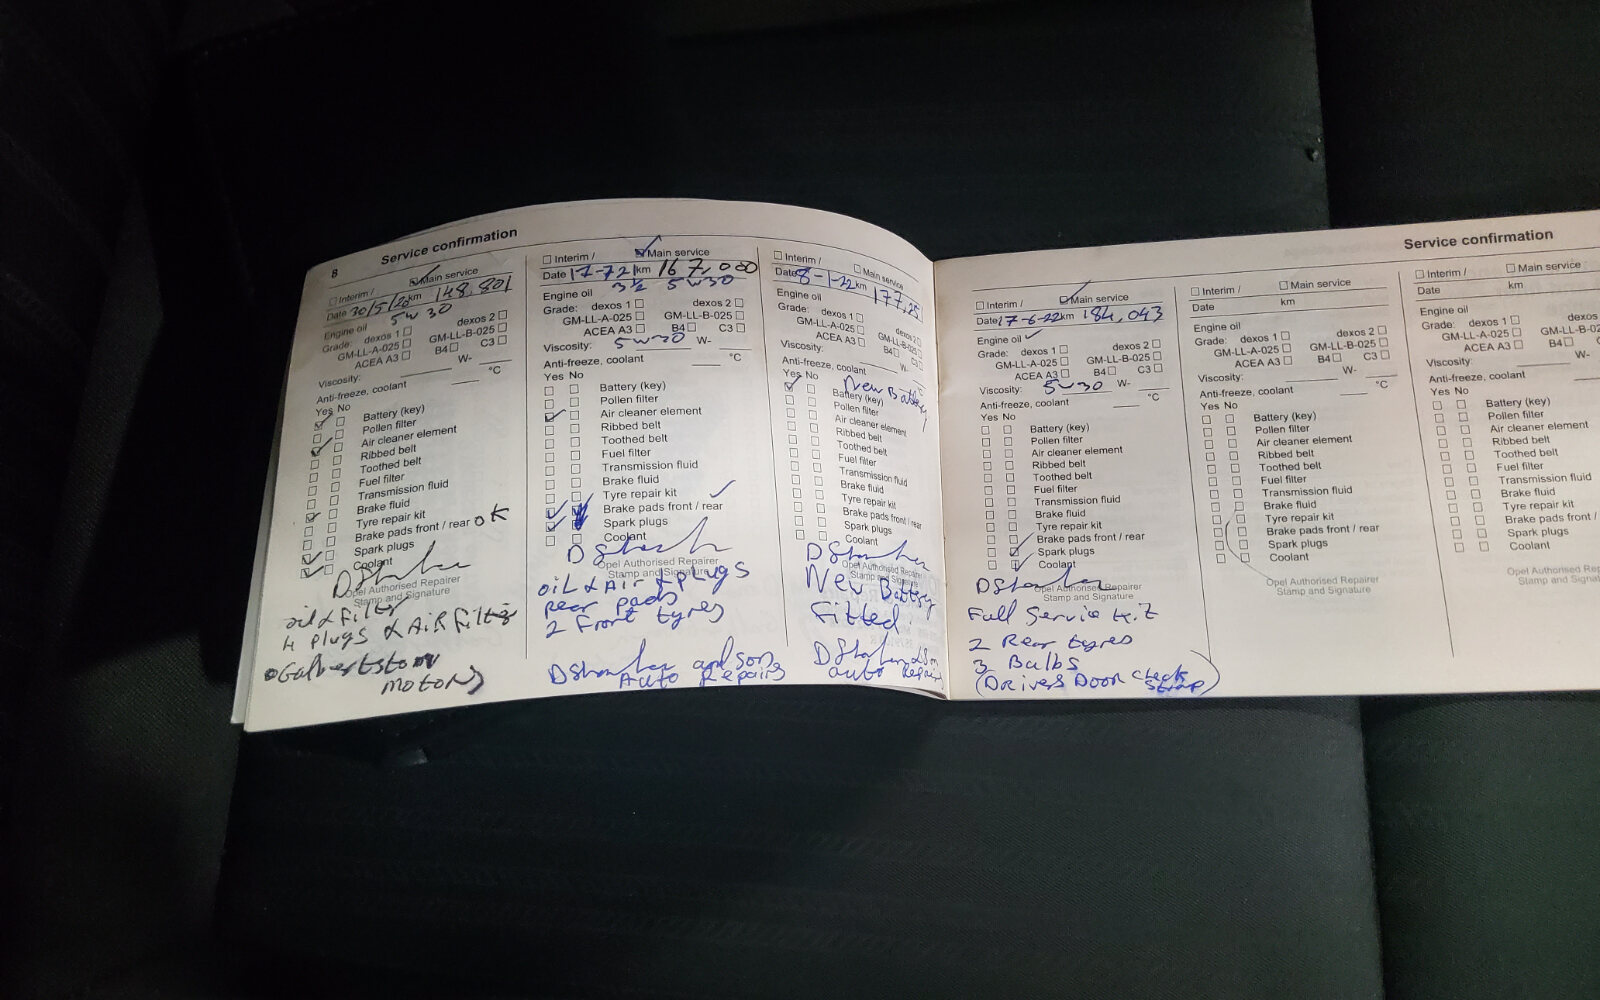 8
Service confirmation
Interim / Main service
Date 30/5/20 km 148,801
5w 30
Engine oil
Grade: dexos 1 dexos 2
GM-LL-A-025 GM-LL-B-025
ACEA A3 B4 C3
Viscosity: W-
Anti-freeze, coolant °C
Yes No
Battery (key)
Pollen filter
Air cleaner element
Ribbed belt
Toothed belt
Fuel filter
Transmission fluid
Brake fluid
Tyre repair kit
Brake pads front / rear OK
Spark plugs
Coolant
Opel Authorised Repairer
Stamp and Signature
oil & Filter
4 Plugs & AiR Filter
motors
Interim / Main service
Date 17-721 km 167,000
3½ 5w30
Engine oil
Grade: dexos 1 dexos 2
GM-LL-A-025 GM-LL-B-025
ACEA A3 B4 C3
Viscosity: 5w30 W-
Anti-freeze, coolant °C
Yes No
Battery (key)
Pollen filter
Air cleaner element
Ribbed belt
Toothed belt
Fuel filter
Transmission fluid
Brake fluid
Tyre repair kit
Brake pads front / rear
Spark plugs
Coolant
Opel Authorised Repairer
Stamp and Signature
oil & Air & plugs
rear pads
2 Front tyres
and Sons
Auto Repairs
Interim / Main service
Date 8-1-22 km 177,25
Engine oil
Grade: dexos 1 dexos 2
GM-LL-A-025 GM-LL-B-025
ACEA A3 B4 C3
Viscosity: W-
Anti-freeze, coolant °C
Yes No New Battery
Battery (key)
Pollen filter
Air cleaner element
Ribbed belt
Toothed belt
Fuel filter
Transmission fluid
Brake fluid
Tyre repair kit
Brake pads front / rear
Spark plugs
Coolant
Opel Authorised Repairer
Stamp and Signature
New Battery
Fitted
auto Repairs
Service confirmation
Interim / Main service
Date 17-6-22 km 184,043
Engine oil
Grade: dexos 1 dexos 2
GM-LL-A-025 GM-LL-B-025
ACEA A3 B4 C3
Viscosity: 5w30 W-
Anti-freeze, coolant °C
Yes No
Battery (key)
Pollen filter
Air cleaner element
Ribbed belt
Toothed belt
Fuel filter
Transmission fluid
Brake fluid
Tyre repair kit
Brake pads front / rear
Spark plugs
Coolant
Opel Authorised Repairer
Stamp and Signature
Full Service
2 Rear tyres
3 Bulbs
(Drivers Door check
strap)
Interim / Main service
Date km
Engine oil
Grade: dexos 1 dexos 2
GM-LL-A-025 GM-LL-B-025
ACEA A3 B4 C3
Viscosity: W-
Anti-freeze, coolant °C
Yes No
Battery (key)
Pollen filter
Air cleaner element
Ribbed belt
Toothed belt
Fuel filter
Transmission fluid
Brake fluid
Tyre repair kit
Brake pads front / rear
Spark plugs
Coolant
Opel Authorised Repairer
Stamp and Signature
Interim / Main service
Date km
Engine oil
Grade: dexos 1 dexos
GM-LL-A-025 GM-LL-B-02
ACEA A3 B4
Viscosity: W-
Anti-freeze, coolant
Yes No
Battery (key)
Pollen filter
Air cleaner element
Ribbed belt
Toothed belt
Fuel filter
Transmission fluid
Brake fluid
Tyre repair kit
Brake pads front /
Spark plugs
Coolant
Opel Authorised Repair
Stamp and Signat